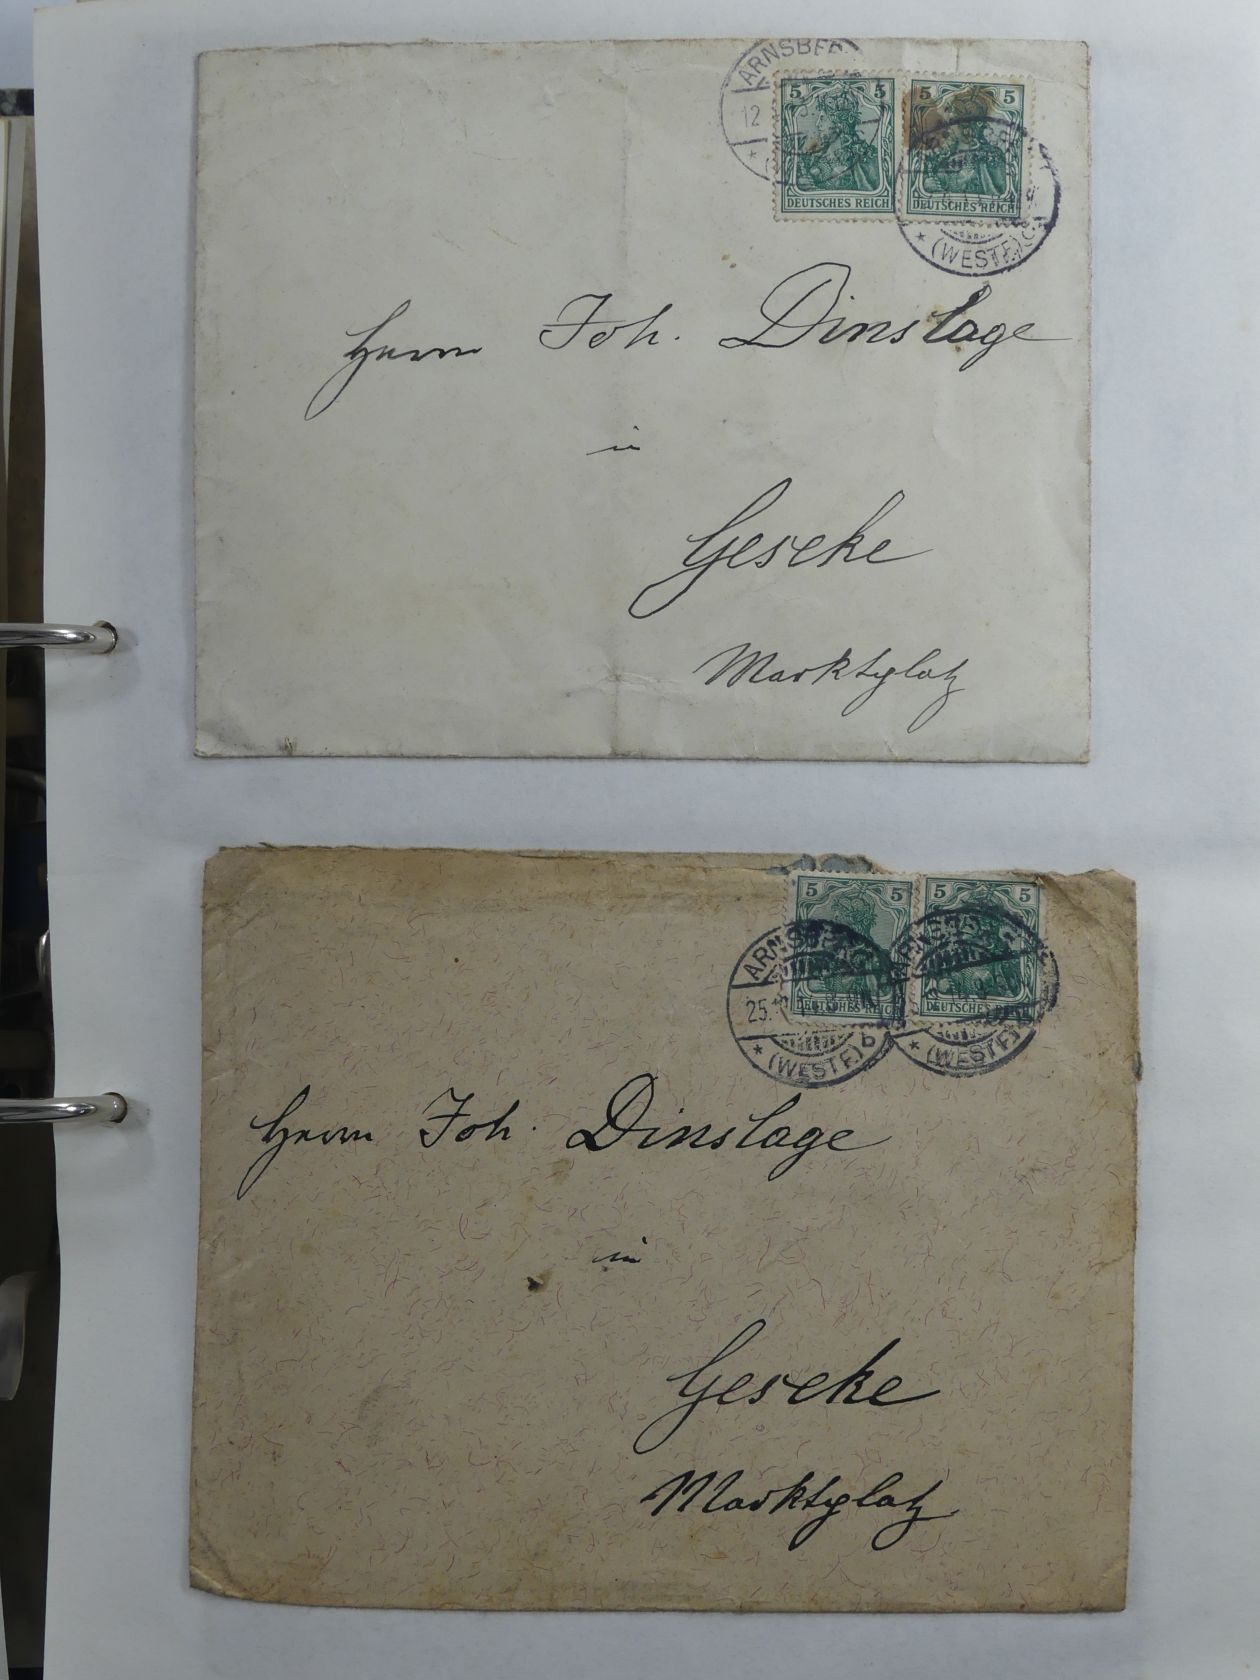 ARNSBER
12
5 5 5 5
DEUTSCHES REICH DEUTSCHES REICH
* (WESTF.) c
Herrn Joh. Dinslage
in
Geseke
Marktplatz
5 5 5 5
ARNSBERG ARNSBERG
25.
DEUTSCHES REICH DEUTSCHES REICH
* (WESTF.) b * (WESTF.)
Herrn Joh. Dinslage
in
Geseke
Marktplatz